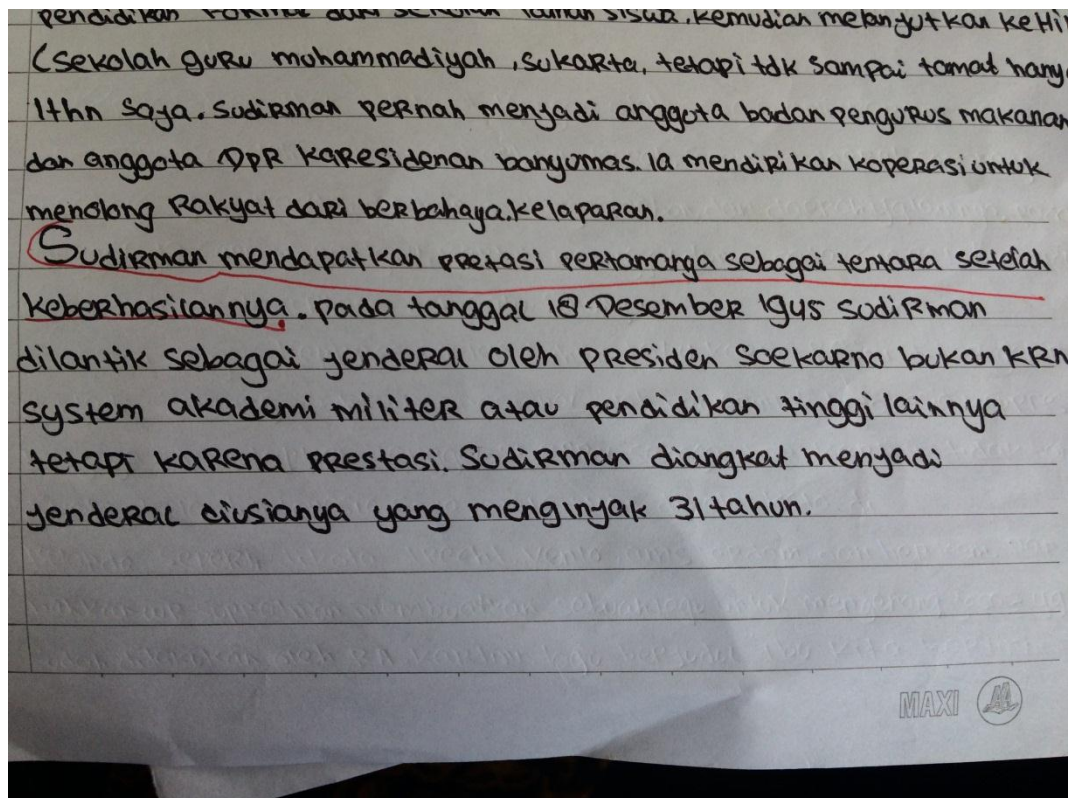 pendidikan formal dari sekolah taman siswa, kemudian melanjutkan ke Hi
(sekolah guru muhammadiyah, sukarta, tetapi tdk sampai tamat hany
1thn saja. Sudirman pernah menjadi anggota badan pengurus makanan
dan anggota DPR karesidenan banyumas. Ia mendirikan koperasi untuk
menolong Rakyat dari berbahaya.kelaparan.
Sudirman mendapatkan pretasi pertamanga sebagai tentara setelah
keberhasilannya. pada tanggal 18 Desember 1945 sudirman
dilantik sebagai jenderal oleh presiden soekarno bukan KRN
system akademi militer atau pendidikan tinggi lainnya
tetapi karena prestasi. Sudirman diangkat menjadi
jenderal diusianya yang menginjak 31 tahun.
MAXI